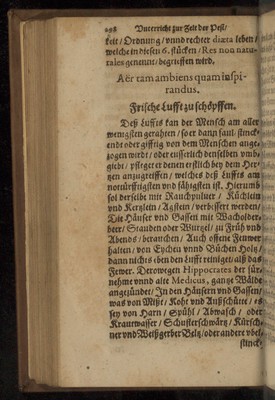 298 Vnterricht zur Zeit der Pest/
keit/Ordnung/vnnd rechter diæta leben/
welche in diesen 6. stücken/Res non natu-
rales genennt/begriffen wird.
Aër tam ambiens quam inspi-
randus.
Frische Lufft zu schöpffen.
Deß Luffts kan der Mensch am aller
wenigsten gerahten/so er dann faul/stinck-
endt oder gifftig von dem Menschen ange-
zogen wirdt/oder eusserlich denselben vmb-
giebt/pfleget er denen erstlich bey dem Her-
tzen anzugreiffen/welches deß Luffts am
notürfftigsten vnd fähigsten ist. Hierumb
sol derselbe mit Rauchpulfer/Küchlein
vnd Kertzlein/Agstein/verbessert werden/
Die Häuser vnd Gassen mit Wacholder-
beer/Stauden oder Wurtzel/zu Früh vnd
Abends/berauchen/Auch offene Fewer
halten/von Eychen vnnd Büchen Holtz/
dann nichts eben den Lufft reiniget/alß das
Fewer. Derowegen Hippocrates der für-
nehme vnnd alte Medicus, gantze Wälde
angezündet/In den Häusern vnd Gassen/
was von Mist/Koht vnd Außschütte/es
sey von Harn/Spühl/Abwasch/oder
Krautwasser/Schusterschwärtz/Kürsch-
ner vnd Weißgerber Beltz/oder andere vbel-
stinck-